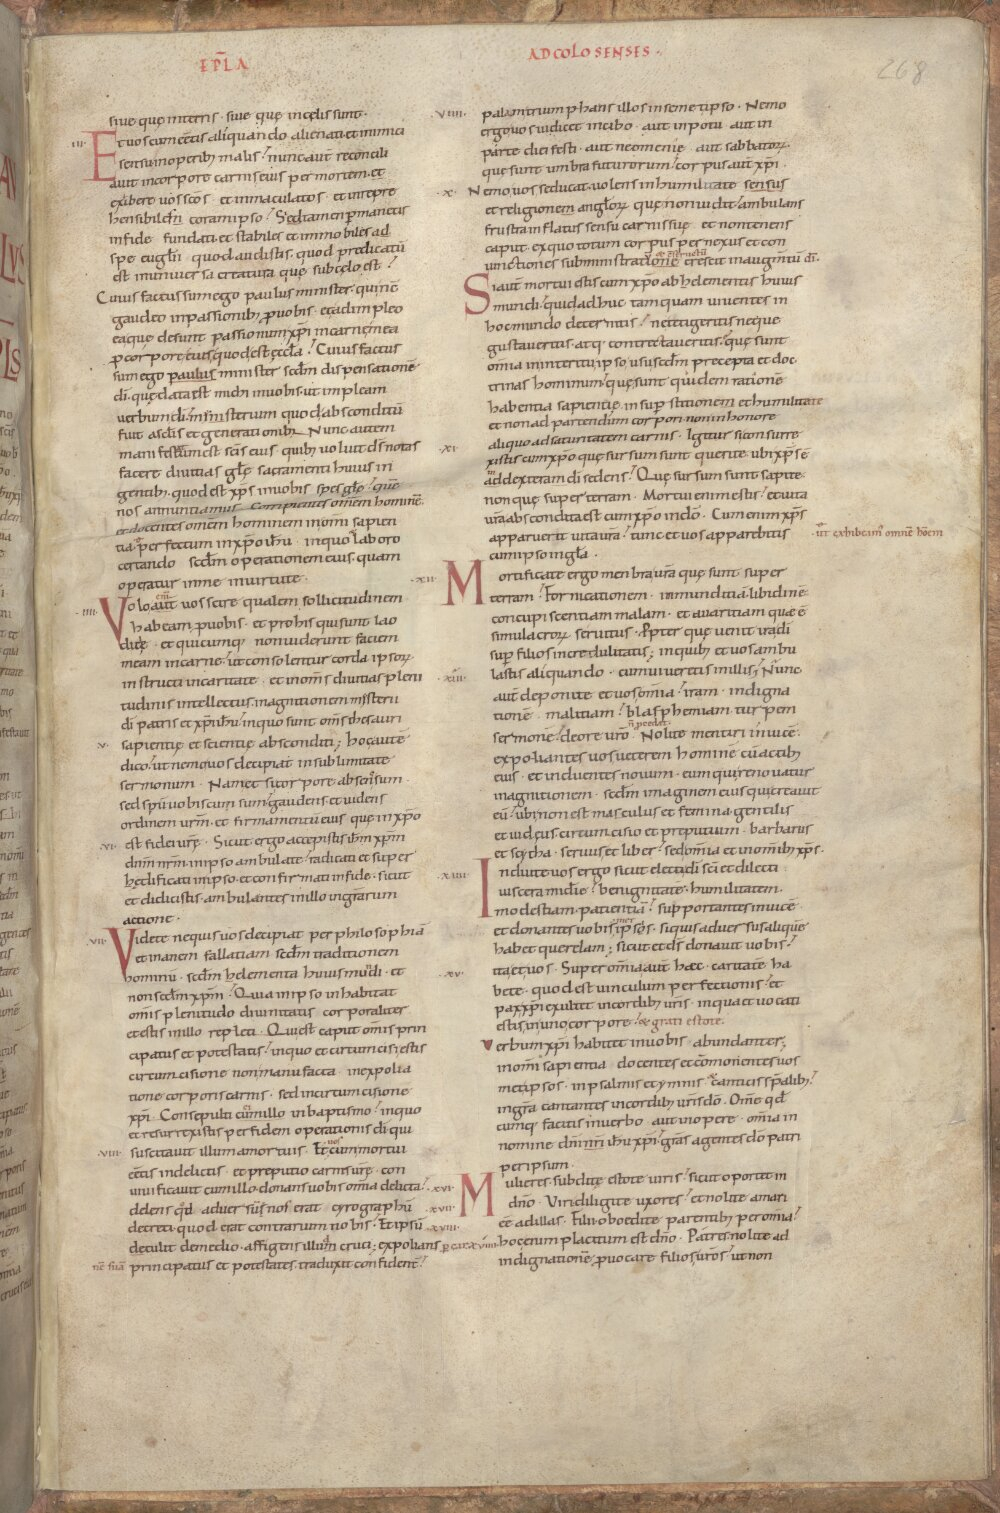 EPLA
AD COLOSENSES
268
siue quę interris · siue quę incęlis sunt ·
·III· Et uos cum eētis aliquando alienati et inimici
sensu inoperibꝫ malis? nunc aut̄ reconcili
auit incorpore carnis eius per mortem et
exibere uos scōs · et inmaculatos · et inrepre
hensibiles coram ipso? Sed tamen p̄manetis
infide fundati et stabiles et immobiles ad
spe euglīi quod audistis · quod predicatū
est inuniuersa creatura quę sub cęlo est?
Cuius factus sum ego paulus minister · qui n̄c
gaudeo inpassionibꝫ ꝓuobis · et adimpleo
ea quę desunt passionum xp̄i incarne mea
ꝓcorpore eius quod est ęccła? Cuius factus
sum ego paulus minister scdm̄ dispensationē
dī quę data est michi inuobis · ut impleam
uerbum dī ministerium quod absconditū
fuit asclīs et generationibꝫ · Nunc autem
manifestum est scīs eius quibꝫ uoluit dn̄s notas
facere diuitias glę̄ sacramenti huius in
gentibꝫ · quod est xp̄s inuobis spes glę̄ · quē
nos annuntiamus Corripientes omēm hominē
et docentes omēm hominem inōmi sapien
tia · perfectum inxp̄o ih̄u · inquo laboro
certando scdm̄ operationem eius · quam
operatur inme inuirtute ·
·IIII· Volo aut̄ uos scire qualem sollicitudinem
habeam ꝓuobis · et prohis qui sunt lao
dicię · et quicumqꝫ non uiderunt faciem
meam incarne? ut consolentur corda ipsorꝫ
instructi incaritate · et inom̄s diuitias pleni
tudinis intellectus · inagnitionem misterii
dī patris et xp̄i ih̄u? inquo sunt om̄s thesauri
·V· sapientię et scientię absconditi; hoc autē
dico? ut nemo uos decipiat in sublimitate
sermonum · Nam et si corpore absens sum ·
sed spū uobiscum sum? gaudens et uidens
ordinem urm̄ · et firmamentū eius quę inxp̄o
·VI· est fidei urę̄ · Sicut ergo accepistis ih̄m xp̄m
dnm̄ nrm̄ inipso ambulate? radicati et super
hędificati inipso et confirmati infide · sicut
et didicistis · ambulantes inillo ingr̄arum
actione ·
·VII· Videte nequis uos decipiat per philosophiā
et inanem fallatiam scdm̄ traditionem
hominū · scdm̄ helementa huius mundi · et
non scdm̄ xp̄m? Quia inipso inhabitat
om̄is plenitudo diuinitatis corporaliter
et estis inillo repleti · Qui est caput om̄is prin
cipatus et potestatis? inquo et circumcisi estis
circumcisione non manu facta inexpolia
tione corporis carnis · sed incircumcisione
xp̄i Consepulti cū illo inbaptismo? inquo
et resurrexistis per fidem operationis dī qui
·VIII· suscitauit illum amortuis · Et uos cum mortui
eētis indelictis · et preputio carnis urę̄ · con
uiuificauit cum illo · donans uobis om̄ia delicta?
delens qd̄ aduersus nos erat cyrographū
decreti quod erat contrarium nobis · Et ipsū
detulit demedio · affigens illum cruci; expolians
principatus et potestates traduxit confident?
·VIIII· palam triumphans illos insemetipso · Nemo
ergo uos iudicet incibo · aut inpotu aut in
parte diei festi · aut neomenię · aut sabbatorꝫ
quę sunt umbra futurorum? corpus aut̄ xp̄i ·
·X· Nemo uos seducat uolens inhumilitate sensus
et religionem anglorꝫ quę non uidit? ambulans
frustra inflatus sensu carnis suę et non tenens
caput exquo totum corpus per nexus et con
iunctiones subministratione crescit inaugmtū dī ·
Si aut̄ mortui estis cum xp̄o ab helementis huius
mundi? quid adhuc tamquam uiuentes in
hoc mundo decernitis? ne tetigeritis neque
gustaueritis · atqꝫ contrectaueritis? quę sunt
om̄ia ininteritū ipso usu scdm̄ precepta et doc
trinas hominum? quę sunt quidem rationē
habentia sapientię insuꝑstitionem et humilitate
et non ad parcendum corpori non inhonore
aliquo ad saturitatem carnis · Igitur si consurre
·XI· xistis cum xp̄o quę sursum sunt querite ubi xp̄s ē
ad dexteram dī sedens? Quę sursum sunt sapite
non quę super terram · Mortui enim estis? et uita
ura abscondita est cum xp̄o indō · Cum enim xp̄s
apparuerit uita ura? tunc et uos apparebitis
cum ipso ingła ·
ut exhibeam omnē hōem
·XII· Mortificate ergo menbra ura quę sunt super
terram? Fornicationem · inmunditiā libidinē ·
concupiscentiam malam · et auaritiam quę ē
simulacrorꝫ seruitus · Ꝓpter quę uenit ira dī
suꝑ filios incredulitatis; inquibꝫ et uos ambu
·XIII· lastis aliquando · cum uiueretis inillis? Nunc
aut̄ deponite et uos om̄ia? iram · indigna
tionē · malitiam? blasphemiam · turpem
sermonē? deore uro n̄ pcedat · Nolite mentiri inuicē ·
expoliantes uos ueterem hominē cū actibꝫ
eius · et induentes nouum · eum qui renouatur
inagnitionem · scdm̄ imaginem eius qui creauit
eū? ubi non est masculus et femina · gentilis
et iudęus · circumcisio et preputium · barbarus
et scytha · seruus et liber? sed om̄ia et inom̄ibꝫ xp̄s ·
·XIIII· Induite uos ergo sicut electi dī scī et dilecti
uiscera mīdię? benignitate · humilitatem ·
modestiam · patientiā? supportantes inuicē
et donantes uobis ipsos · siquis aduersus aliquē
habet querelam; sicut et dn̄s donauit uobis?
·XV· ita et uos · Super om̄ia aut̄ haec · caritatē ha
bete · quod est uinculum perfectionis? et
pax xp̄i exultet incordibꝫ uris · inqua et uocati
estis inuno corpore? & grati estote ·
Verbum xp̄i habitet inuobis · abundanter;
inomī sapientia docentes et cōmonentes uos
metipsos · inpsalmis et ymnis & canticis sp̄alibꝫ?
ingr̄a cantantes incordibꝫ uris dō · Om̄e qd̄
cumqꝫ facitis inuerbo aut inopere · om̄ia in
nomine dnī nrī ih̄u xp̄i? gr̄as agentes dō patri
per ipsum ·
·XVI· Mulieres subditę estote uiris? sicut oportet in
·XVII· dn̄o · Viri diligite uxores? et nolite amari
·XVIII· eē ad illas · Filii oboedite parentibꝫ per om̄ia?
hoc enim placitum est dn̄o · Patres nolite ad
indignationē ꝓuocare filios uros? ut non